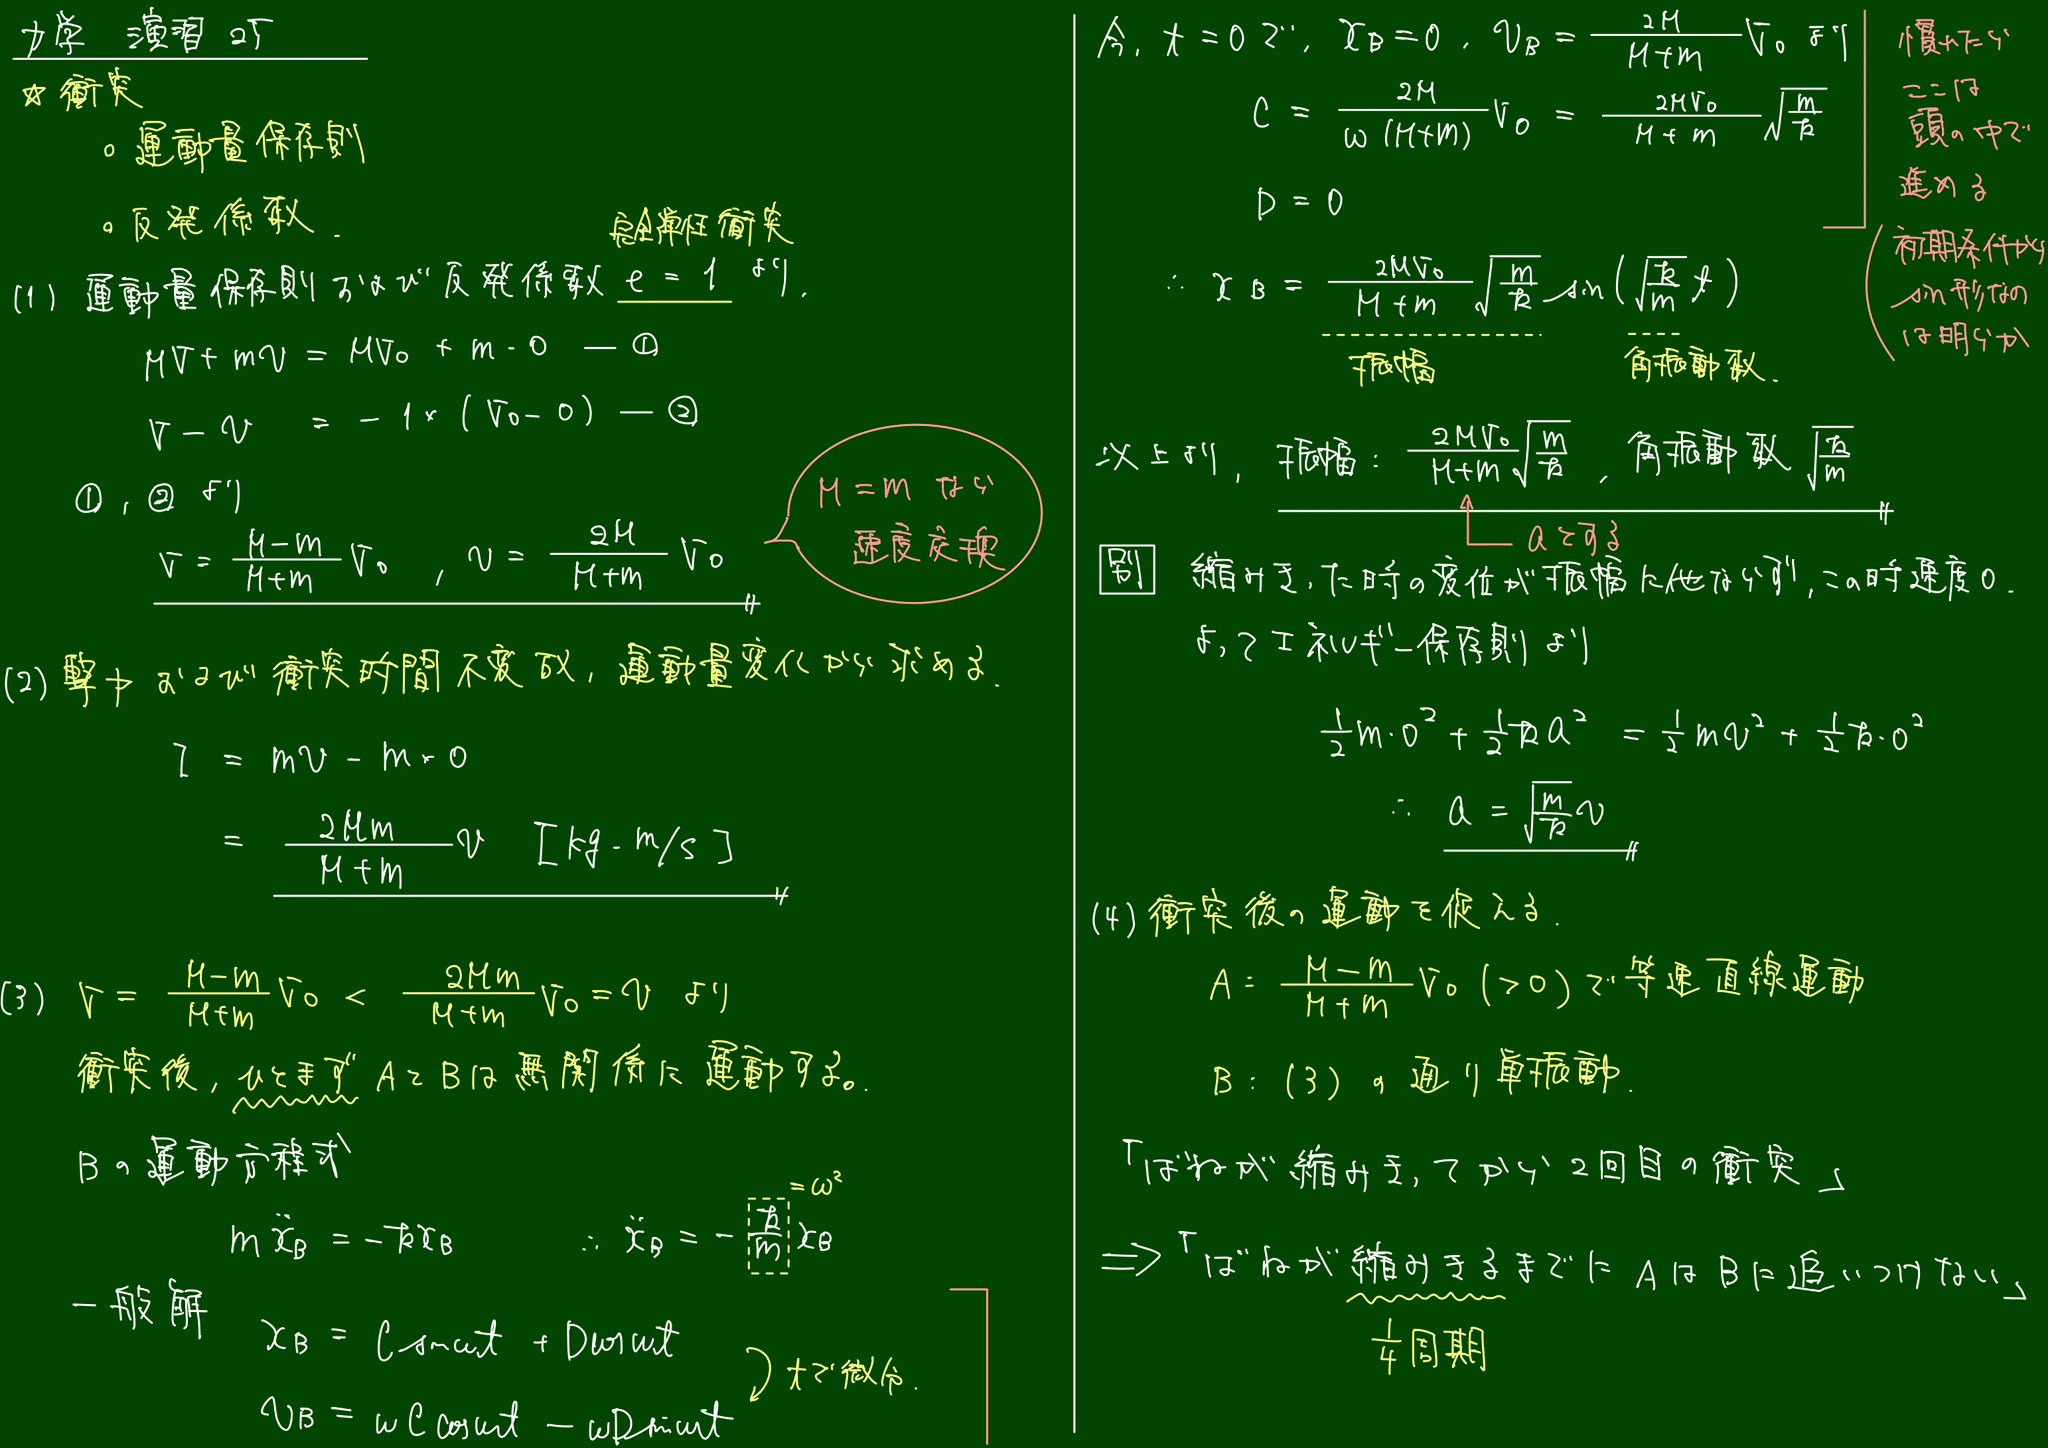 力学 演習 25
☆ 衝突
○ 運動量保存則
○ 反発係数.
完全弾性衝突
(1) 運動量保存則および反発係数 e = 1 より.
MV + mv = MV₀ + m・0 — ①
V - v = - 1 × (V₀ - 0) — ②
①, ② より
V = \frac{M-m}{M+m} V₀ , v = \frac{2M}{M+m} V₀
M = m なら
速度交換
(2) 撃力および衝突時間不変故, 運動量変化から求める.
I = mv - m・0
= \frac{2Mm}{M+m} v [kg・m/s]
(3) V = \frac{M-m}{M+m} V₀ < \frac{2Mm}{M+m} V₀ = v より
衝突後, ひとまず AとBは無関係に運動する。
Bの運動方程式
m\ddot{x}_B = -kx_B ∴ \ddot{x}_B = -\frac{k}{m} x_B
= ω²
一般解
x_B = C sin ωt + D cos ωt
v_B = ωC cos ωt - ωD sin ωt
tで微分.
今, t = 0 で, x_B = 0, v_B = \frac{2M}{M+m} V₀ より
C = \frac{2M}{ω(M+m)} V₀ = \frac{2MV₀}{M+m} \sqrt{\frac{m}{k}}
D = 0
∴ x_B = \frac{2MV₀}{M+m} \sqrt{\frac{m}{k}} sin(\sqrt{\frac{k}{m}} t)
振幅 角振動数.
慣れたら
ここは
頭の中で
進める
(初期条件から
sin形なの
は明らか
以上より, 振幅: \frac{2MV₀}{M+m} \sqrt{\frac{m}{k}}, 角振動数 \sqrt{\frac{k}{m}}
aとする
別 縮みきった時の変位が振幅に他ならず, この時速度0.
よってエネルギー保存則より
\frac{1}{2} m・0² + \frac{1}{2} ka² = \frac{1}{2} mv² + \frac{1}{2} k・0²
∴ a = \sqrt{\frac{m}{k}} v
(4) 衝突後の運動を捉える.
A: \frac{M-m}{M+m} V₀ (>0) で等速直線運動
B: (3) の通り単振動.
「ばねが縮みきってから2回目の衝突」
⇒「ばねが縮みきるまでに AはBに追いつけない」
\frac{1}{4} 周期